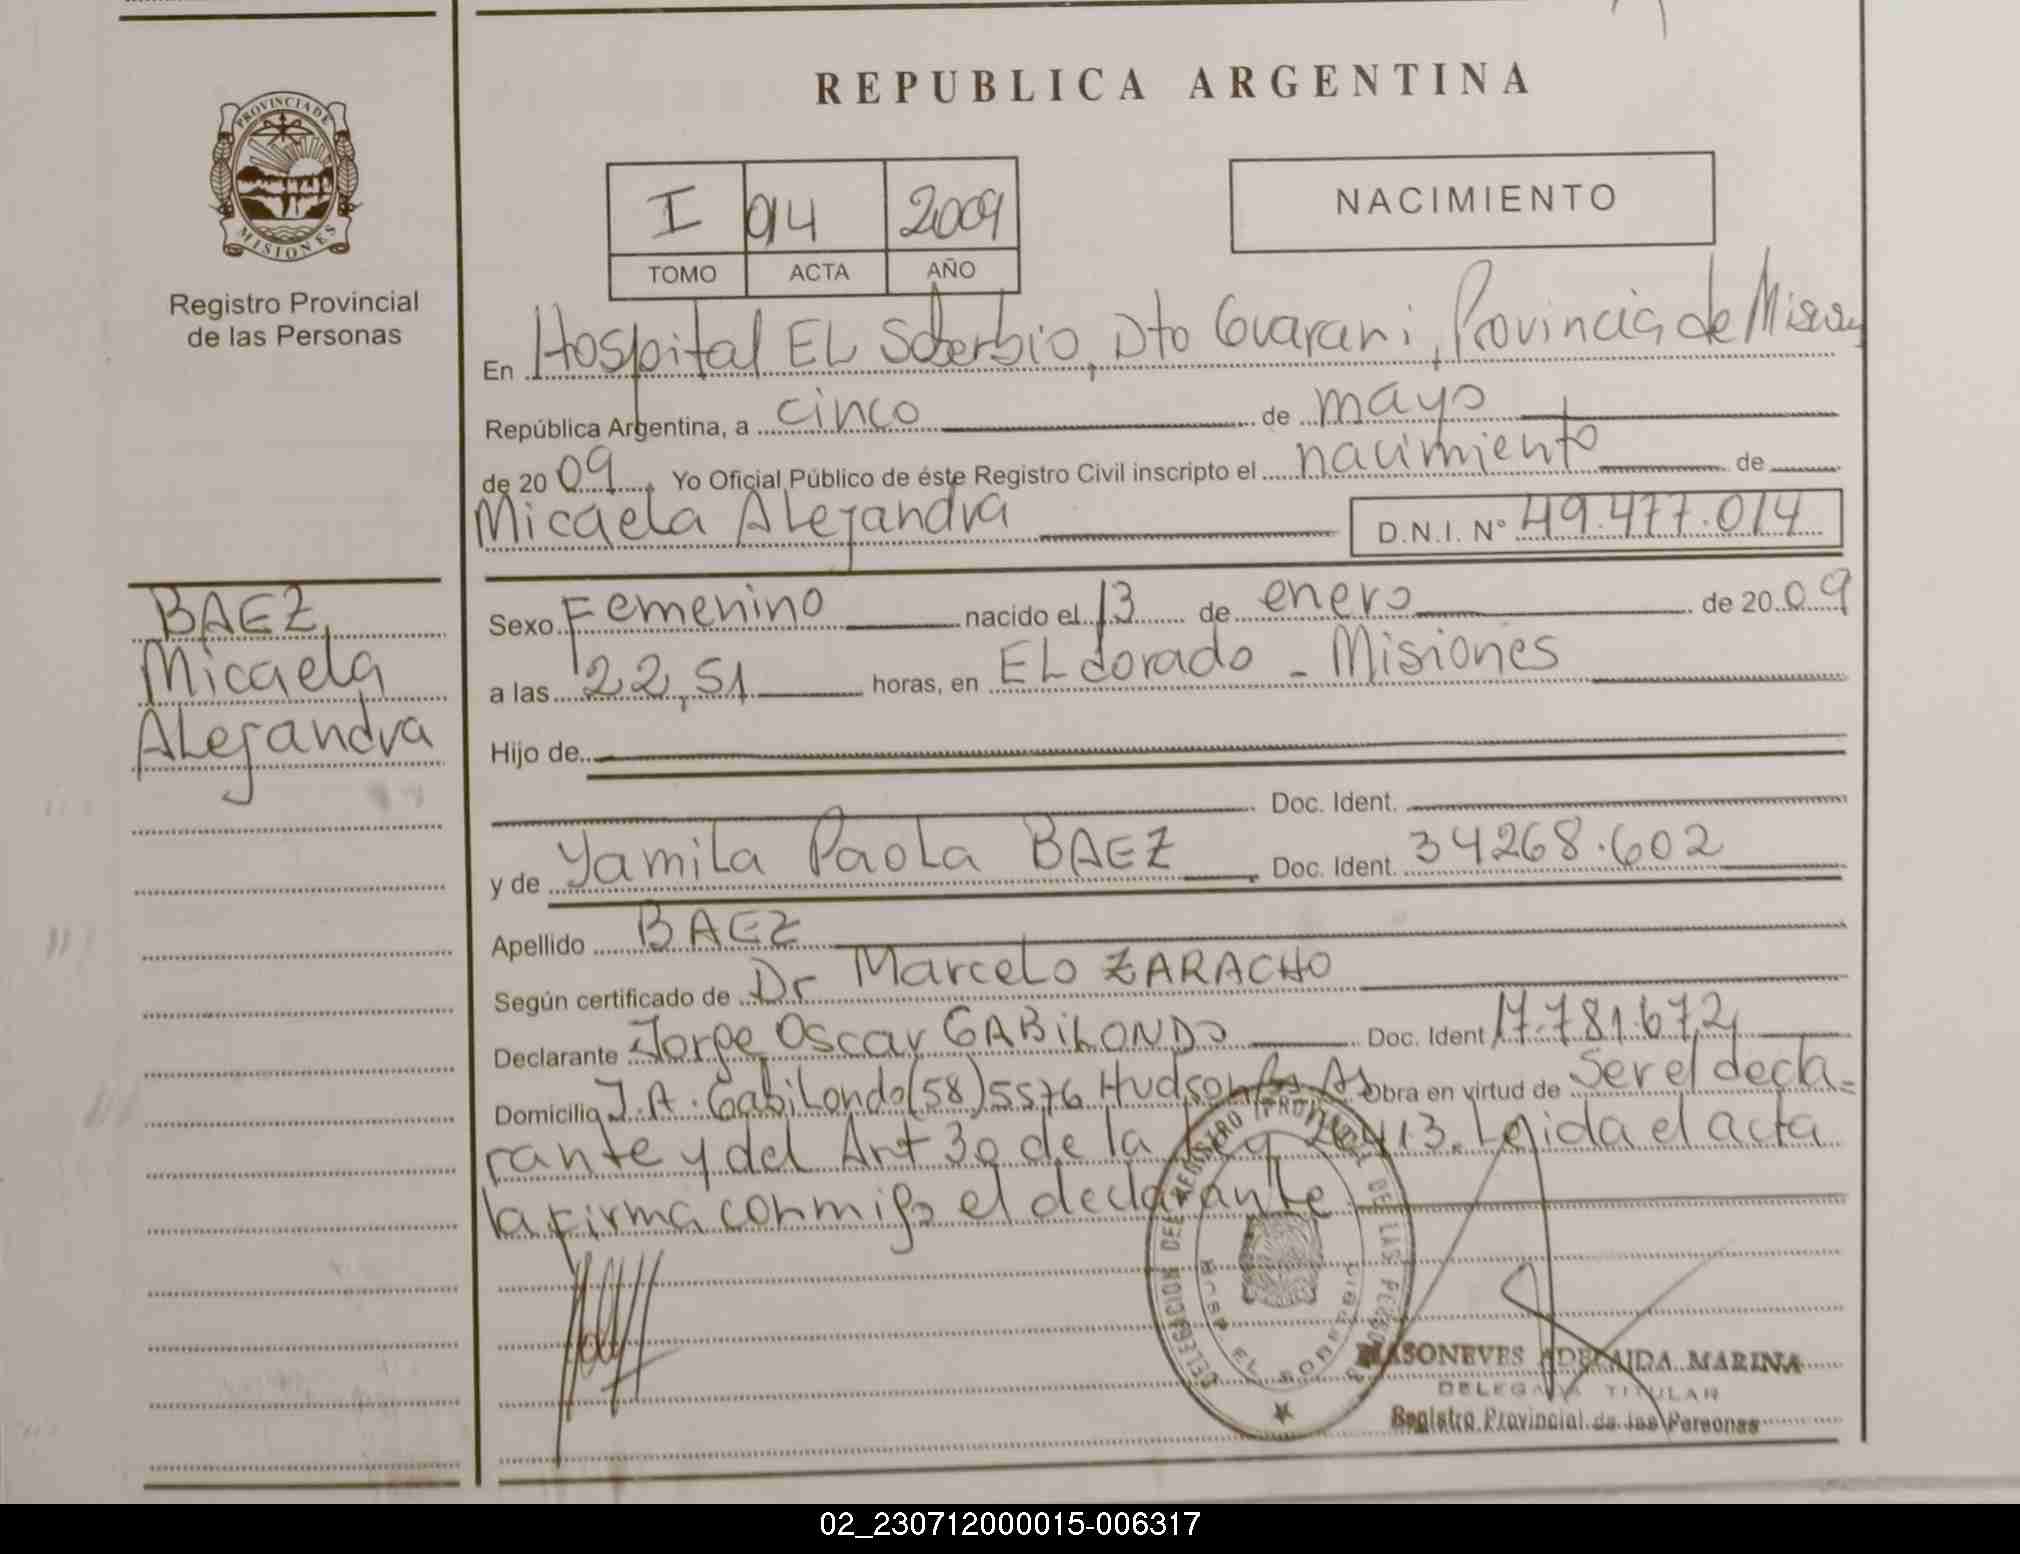 REPUBLICA ARGENTINA
PROVINCIA DE
MISIONES
Registro Provincial
de las Personas
I 014 2009
TOMO ACTA AÑO
NACIMIENTO
En Hospital EL Soberbio, Dto Guarani, Provincia de Misiones
República Argentina, a cinco de mayo
de 2009. Yo Oficial Público de éste Registro Civil inscripto el nacimiento de
Micaela Alejandra D.N.I. N° 49.477.014
BAEZ
Micaela
Alejandra
Sexo Femenino nacido el 13 de enero de 2009
a las 22,51 horas, en ELdorado - Misiones
Hijo de
Doc. Ident.
y de Yamila Paola BAEZ Doc. Ident. 34268.602
Apellido BAEZ
Según certificado de Dr Marcelo ZARACHO
Declarante Jorge Oscar GABILONDO Doc. Ident 17.781.672
Domicilio J.A. Gabilondo (58) 5576 Hudson Bs As Obra en virtud de ser el decla=
rante y del Art 30 de la Ley 26413. Leida el acta
la firma conmigo el declarante
DELEGACION DEL REGISTRO PROVINCIAL DE LAS PERSONAS
EL SOBERBIO
MASONEVES ADELAIDA MARINA
DELEGADA TITULAR
Registro Provincial de las Personas
02_230712000015-006317